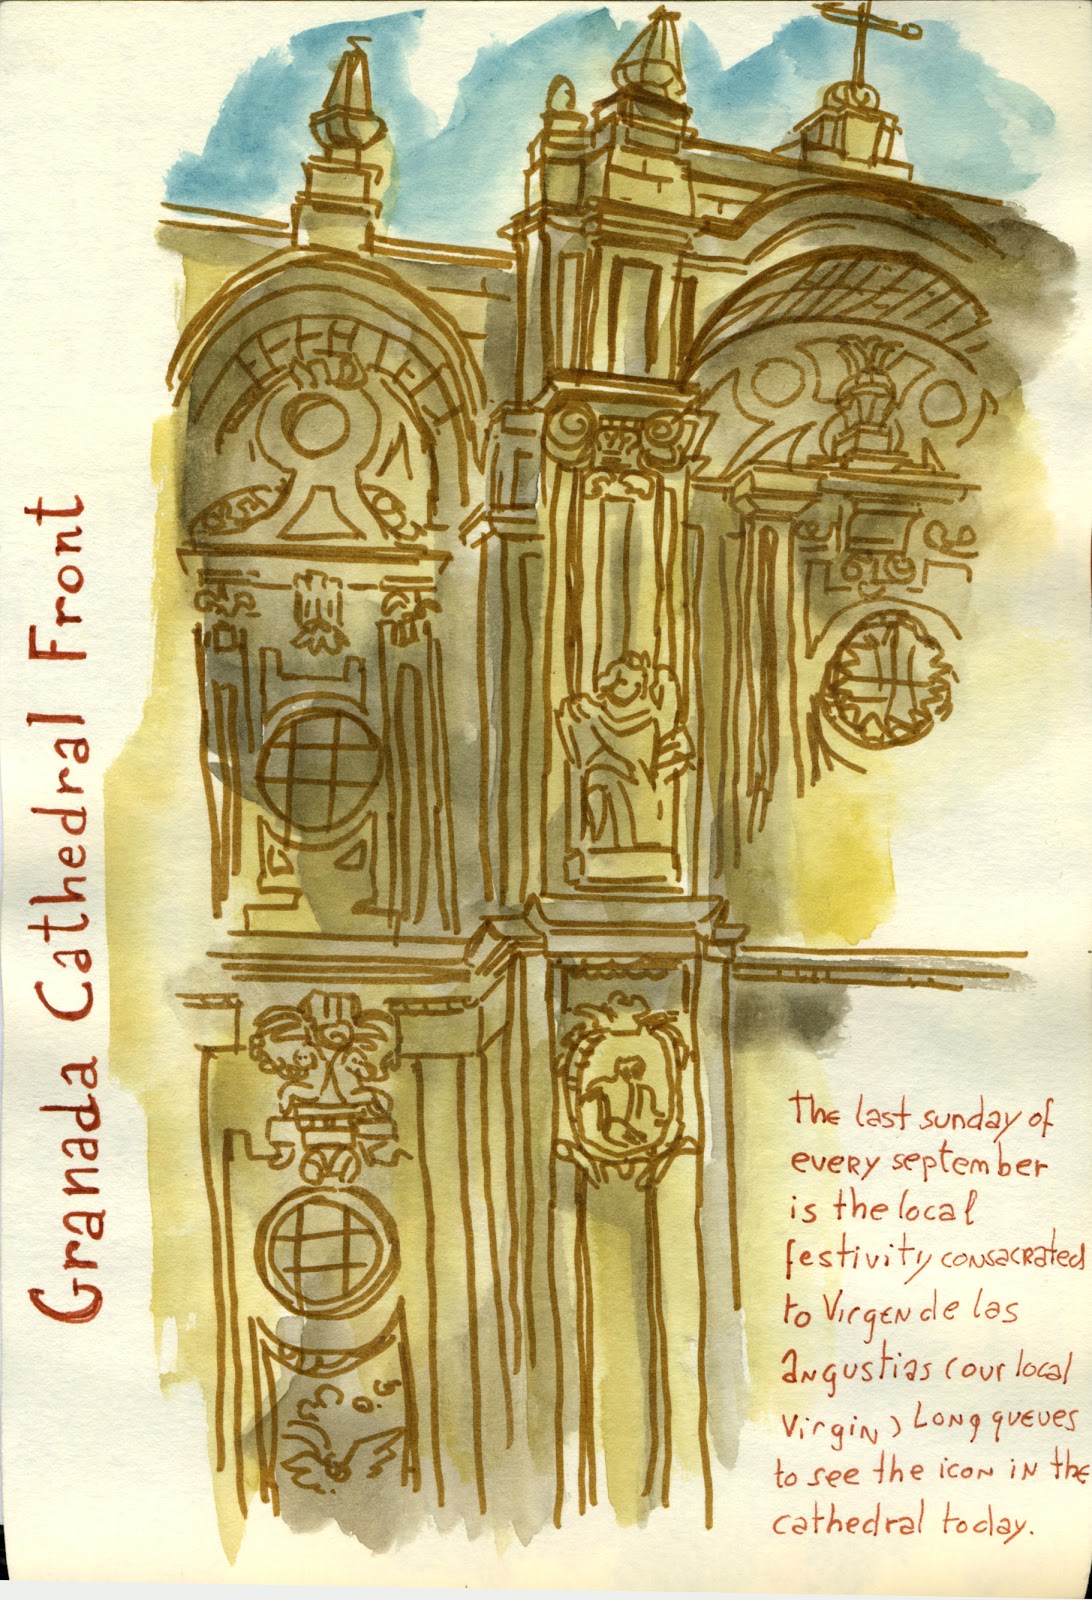 Granada Cathedral Front
The last sunday of
every september
is the local
festivity consacrated
to Virgen de las
angustias (our local
virgin) Long queues
to see the icon in the
cathedral today.